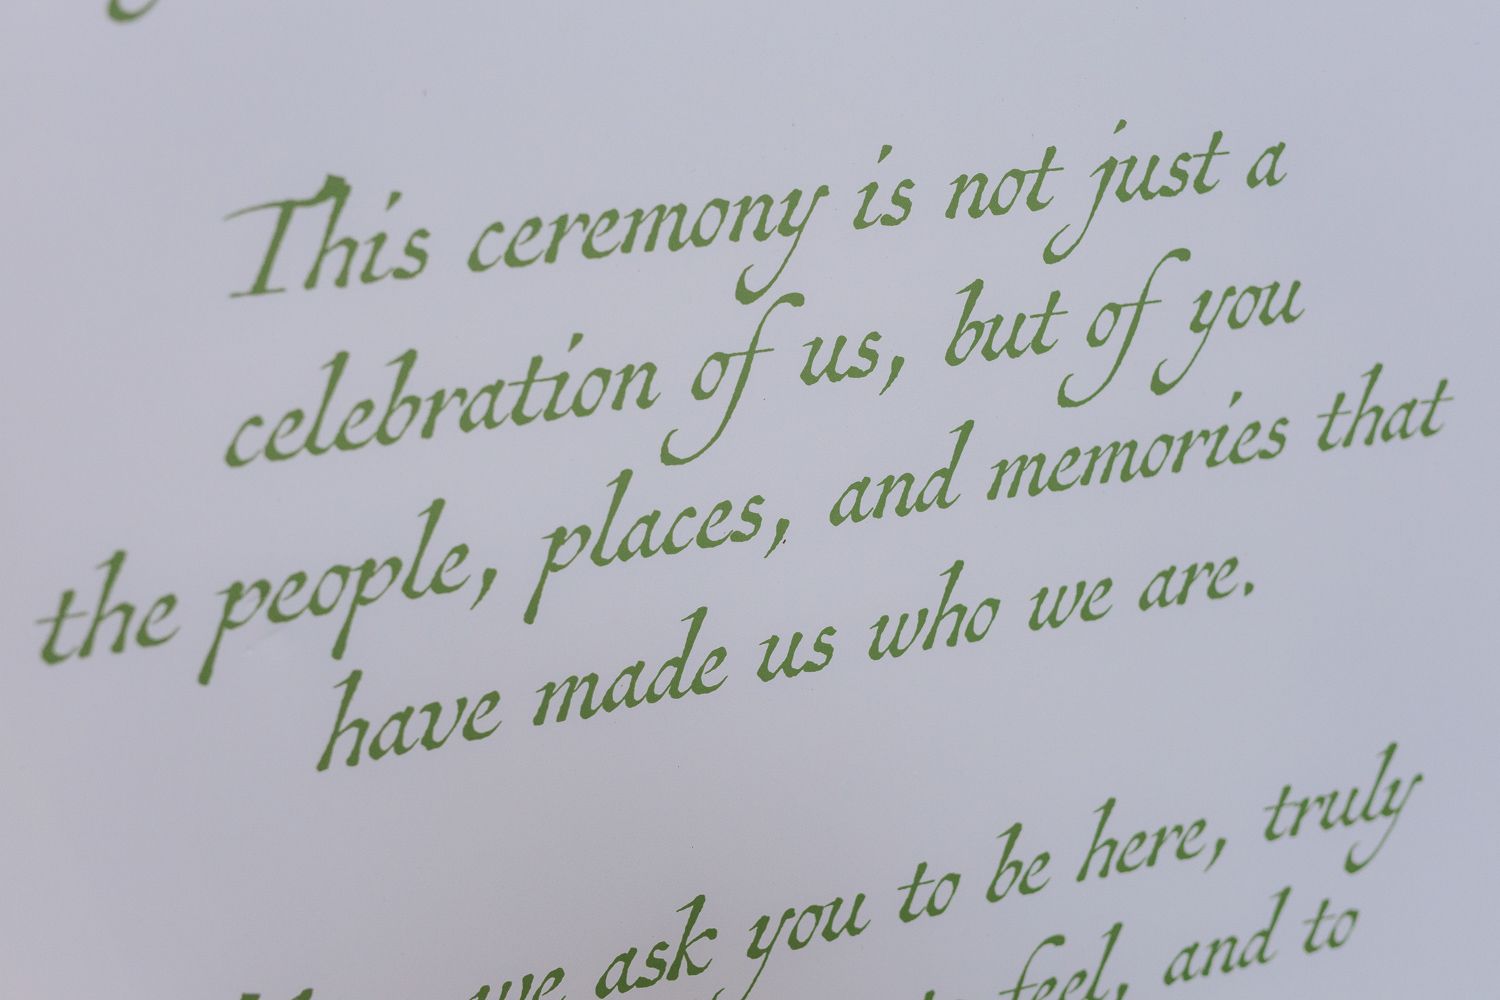 This ceremony is not just a
celebration of us, but of you
the people, places, and memories that
have made us who we are.
we ask you to be here, truly
feel, and to